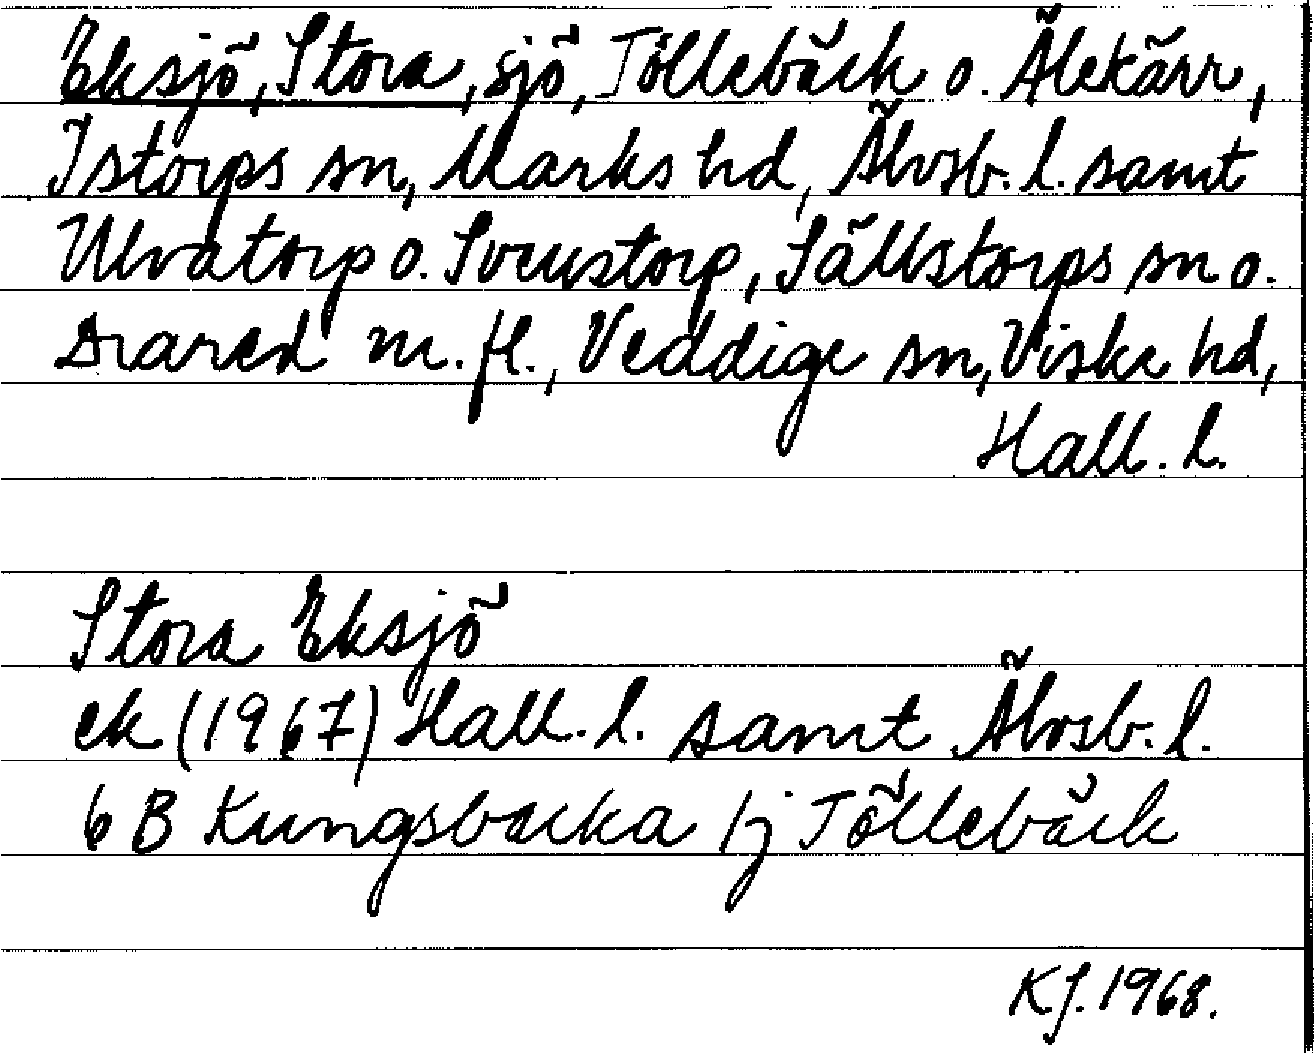 Eksjö, Stora, sjö, Töllebäck o. Älekärr,
Istorps sn, Marks hd, Älvsb. l. samt
Ulvatorp o. Svenstorp, Sällstorps sn o.
Drared m. fl., Veddige sn, Viske hd,
Hall. l.
Stora Eksjö
ek (1967) Hall. l. samt Älvsb. l.
6 B Kungsbacka 1j Töllebäck
K.J. 1968.